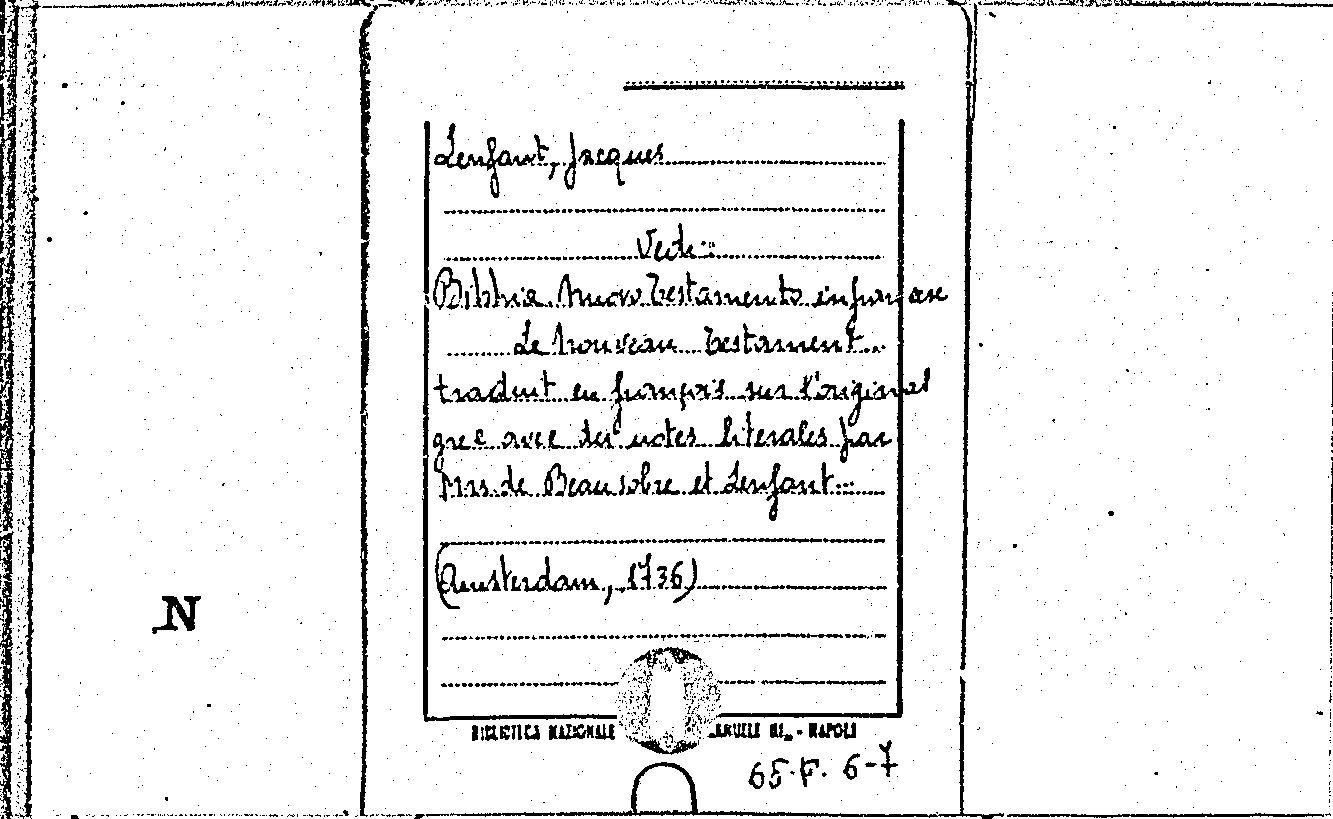 Lenfant, Jacques
Vedi:
Bibbia. Nuovo Testamento in francese
Le Nouveau Testament..
traduit en françois sur l'original
grec avec des notes literales par
Mrs. de Beausobre et Lenfant...
(Amsterdam, 1736)
N
BIBLIOTECA NAZIONALE ANUELE III„ - NAPOLI
65.F. 6-7